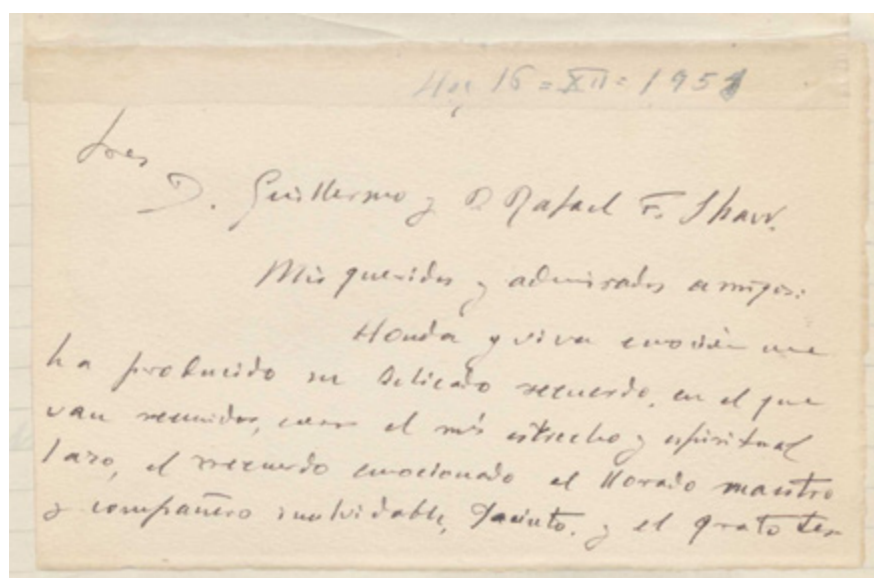 Hoy 16 = XII = 1951
Sres
D. Guillermo y D Rafael F. Shaw.
Mis queridos y admirados amigos:
Honda y viva emoción me
ha producido su delicado recuerdo, en el que
van reunidos, como el más estrecho y espiritual
lazo, el recuerdo emocionado al llorado maestro
y compañero inolvidable, Jacinto, y el grato tes